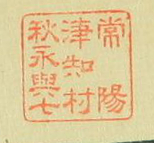 常陽
津知村
秋永與七